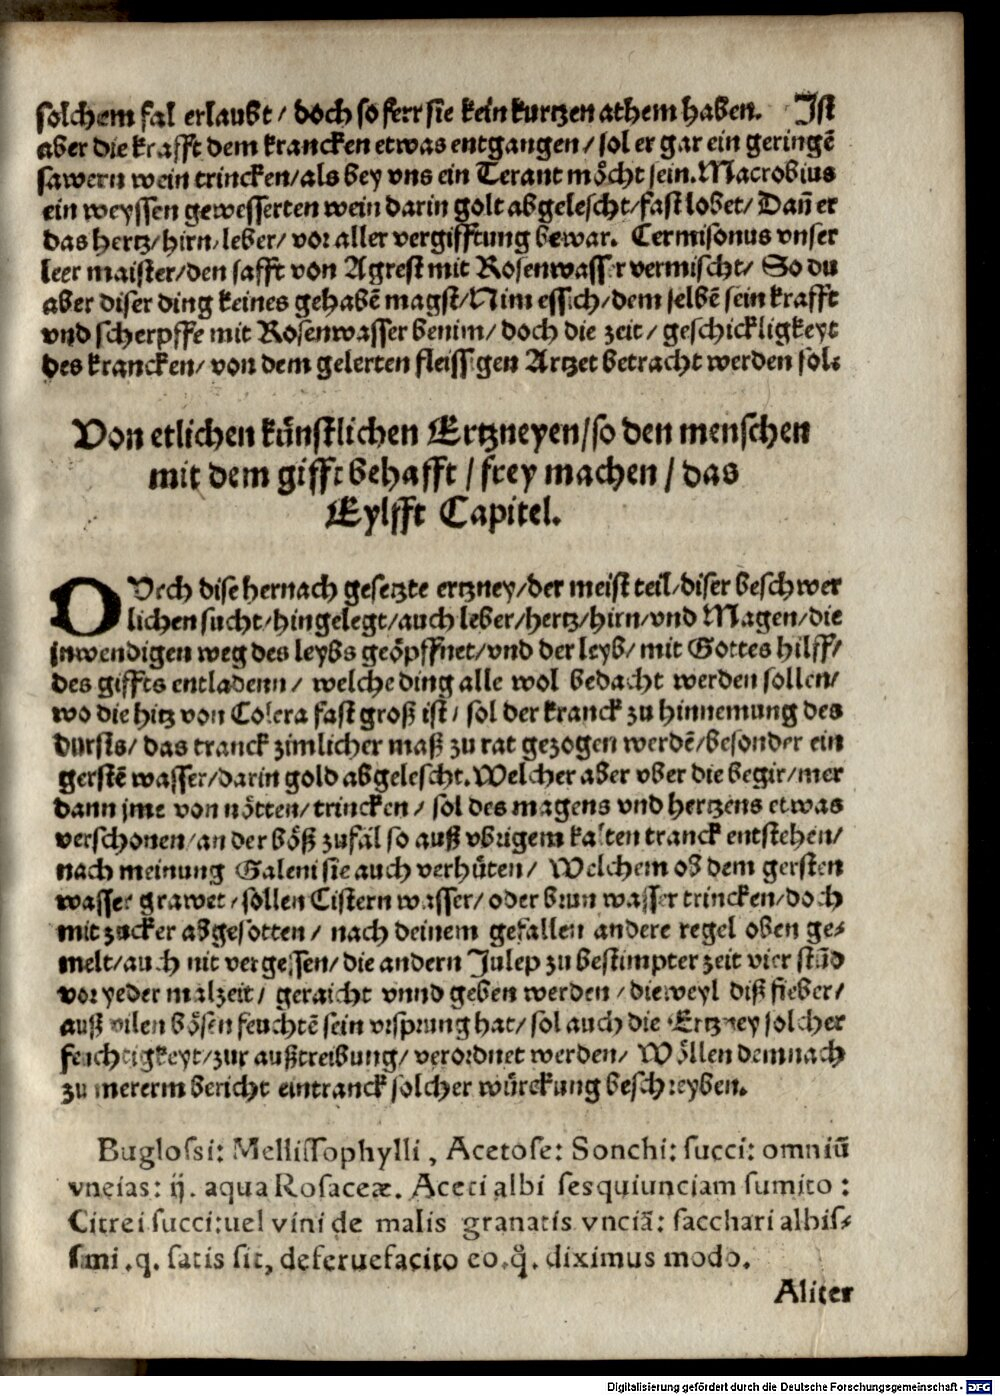 solchem fal erlaubt / doch so ferr sie kein kurtzen athem haben. Ist
aber die krafft dem krancken etwas entgangen / sol er gar ein geringẽ
sawern wein trincken / als bey vns ein Terant moͤcht sein. Macrobius
ein weyssen gewesserten wein darin golt abgelescht / fast lobet / Dañ er
das hertz / hirn / leber / vor aller vergifftung bewar. Cermisonus vnser
leer maister / den safft von Agrest mit Rosenwasser vermischt / So du
aber diser ding keines gehabẽ magst / Nim essich / dem selbẽ sein krafft
vnd scherpffe mit Rosenwasser benim / doch die zeit / geschickligkeyt
des krancken / von dem gelerten fleissigen Artzet betracht werden sol.
Von etlichen kuͤnstlichen Ertzneyen / so den menschen
mit dem gifft behafft / frey machen / das
Eylfft Capitel.
DVrch dise hernach gesetzte ertzney / der meist teil / diser beschwer
lichen sucht / hingelegt / auch leber / hertz / hirn / vnd Magen / die
jnwendigen weg des leybs geoͤpffnet / vnd der leyb / mit Gottes hilff /
des giffts entladenn / welche ding alle wol bedacht werden sollen /
wo die hitz von Colera fast groß ist / sol der kranck zu hinnemung des
dursts / das tranck zimlicher maß zu rat gezogen werdẽ / besonder ein
gerstẽ wasser / darin gold abgelescht. Welcher aber vber die begir / mer
dann jme von noͤtten / trincken / sol des magens vnd hertzens etwas
verschonen / an der boͤß zufaͤl so auß vbrigem kalten tranck entstehen /
nach meinung Galeni sie auch verhuͤten / Welchem ob dem gersten
wasser grawet / sollen Cistern wasser / oder brun wasser trincken / doch
mit zucker abgesotten / nach deinem gefallen andere regel oben ge⸗
melt / auch nit vergessen / die andern Julep zu bestimpter zeit vier stũd
vor yeder malzeit / geraicht vnnd geben werden / die weyl diß fieber /
auß vilen boͤsen feuchtẽ sein vrsprung hat / sol auch die Ertzney solcher
feuchtigkeyt / zur außtreibung / verordnet werden / Woͤllen demnach
zu mererm bericht ein tranck solcher wuͤrckung beschreyben.
Buglossi: Mellissophylli, Acetose: Sonchi: succi: omniũ
vncias: ij. aqua Rosaceæ. Aceti albi sesquiunciam sumito:
Citrei succi: uel vini de malis granatis vnciã: sacchari albis⸗
simi .q. satis sit, deferuefacito eo. q̊. diximus modo.
Aliter
Digitalisierung gefördert durch die Deutsche Forschungsgemeinschaft - DFG